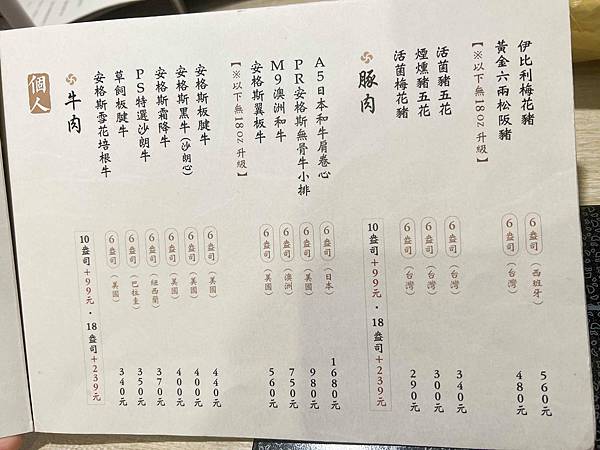 個人
牛肉
10盎司+99元・18盎司+239元
安格斯雪花培根牛 6盎司(美國) 340元
草飼板腱牛 6盎司(巴拉圭) 350元
PS特選沙朗牛 6盎司(紐西蘭) 370元
安格斯霜降牛 6盎司(美國) 400元
安格斯黑牛(沙朗心) 6盎司(美國) 400元
安格斯板腱牛 6盎司(美國) 440元
【※以下無18oz升級】
安格斯翼板牛 6盎司(美國) 560元
M9澳洲和牛 6盎司(澳洲) 750元
PR安格斯無骨牛小排 6盎司(美國) 980元
A5日本和牛肩卷心 6盎司(日本) 1680元
豚肉
10盎司+99元・18盎司+239元
活菌梅花豬 6盎司(台灣) 290元
煙燻豬五花 6盎司(台灣) 300元
活菌豬五花 6盎司(台灣) 340元
【※以下無18oz升級】
黃金六兩松阪豬 6盎司(台灣) 480元
伊比利梅花豬 6盎司(西班牙) 560元